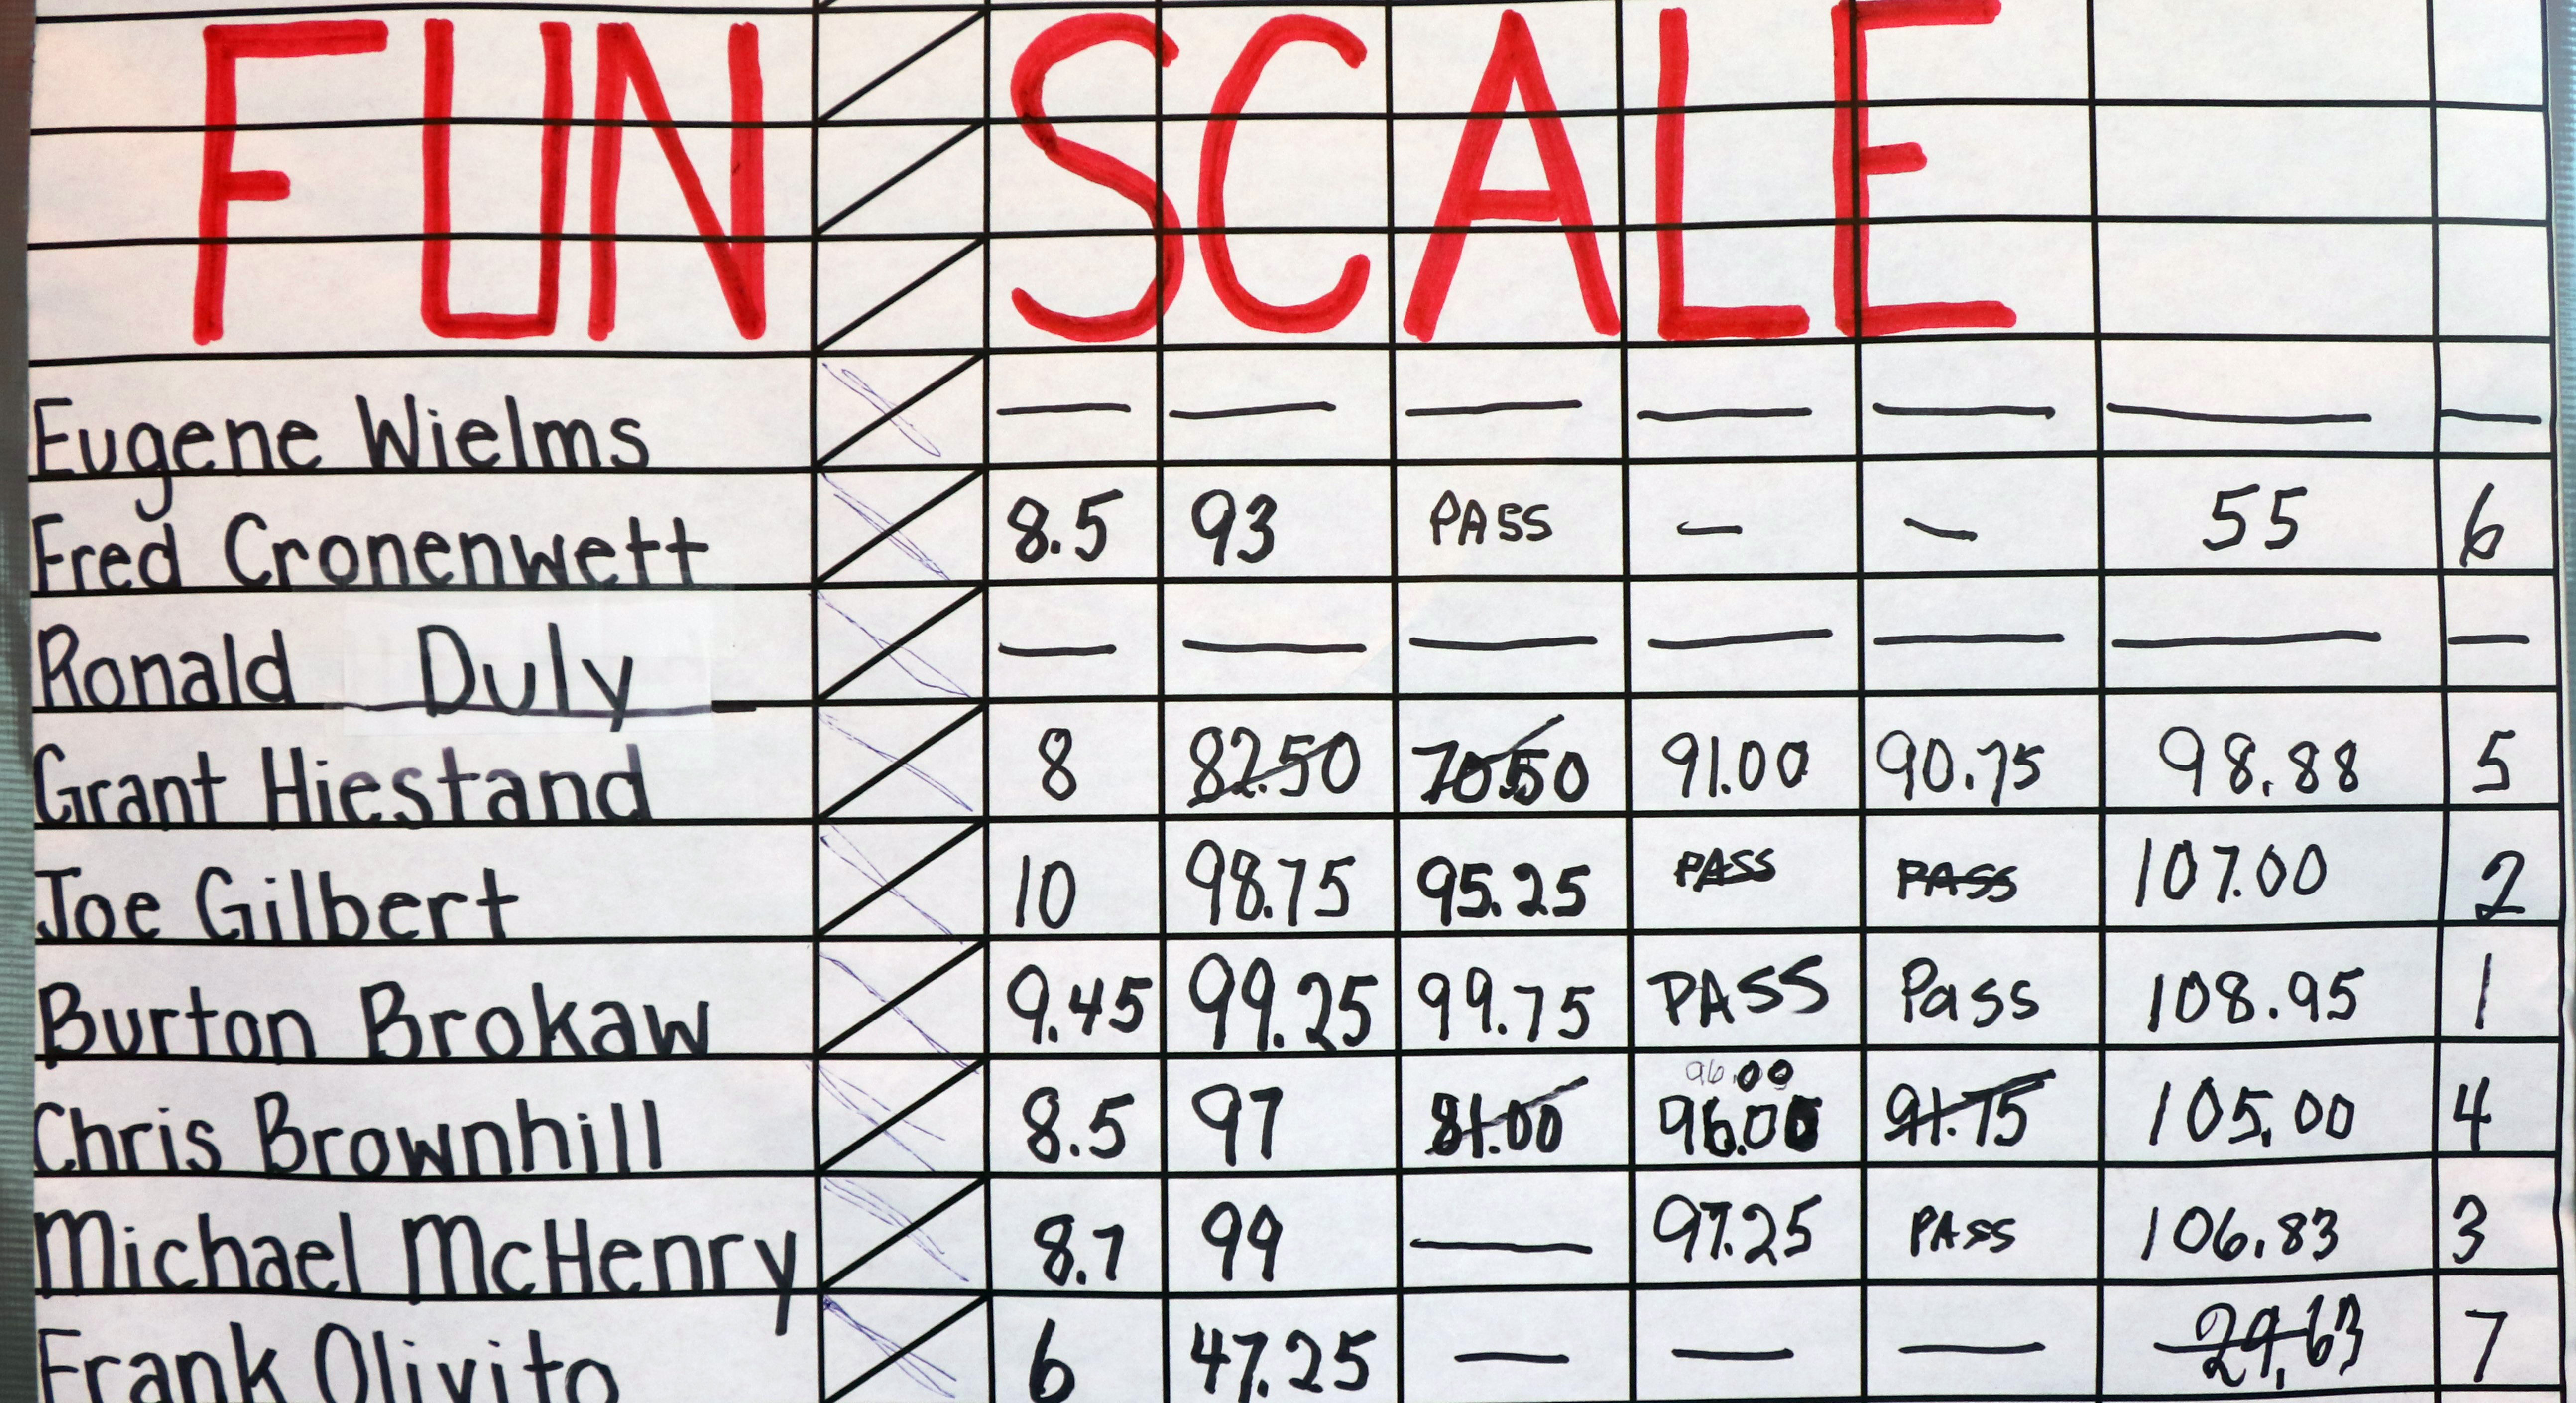 FUN SCALE
Eugene Wielms — — — — — — —
Fred Cronenwett 8.5 93 PASS — — 55 6
Ronald Duly — — — — — — —
Grant Hiestand 8 82.50 70.50 91.00 90.75 98.88 5
Joe Gilbert 10 98.75 95.25 PASS PASS 107.00 2
Burton Brokaw 9.45 99.25 99.75 PASS Pass 108.95 1
96.00
Chris Brownhill 8.5 97 81.00 96.00 91.75 105.00 4
Michael McHenry 8.7 99 — 97.25 PASS 106.83 3
Frank Olivito 6 47.25 — — — 29.63 7